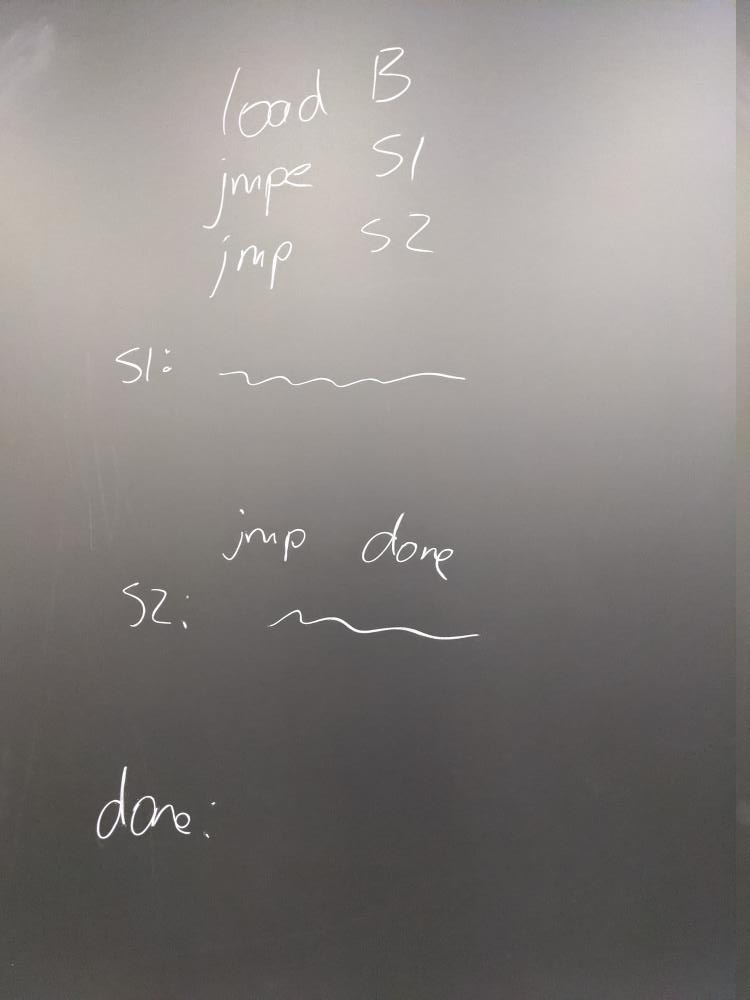 load B
jmpe S1
jmp S2
S1:
jmp done
S2:
done: